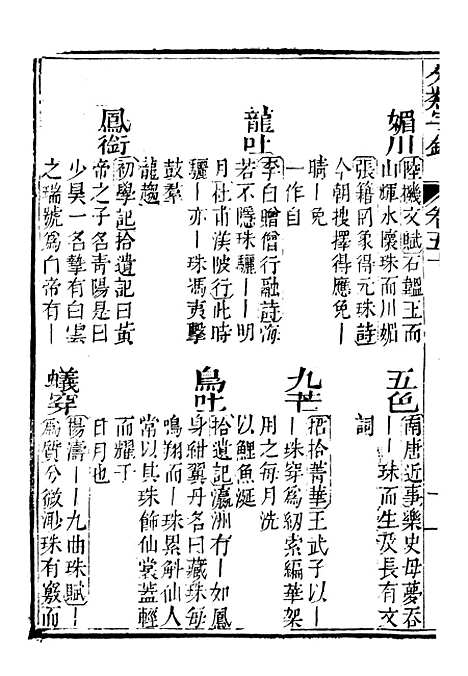 分類字錦
卷五十
媚川
陸機文賦石韞玉而
山輝水懷珠而川媚
張籍罔象得元珠詩
今朝搜擇得應免一
晴一免
一作自
龍吐
李白贈僧行融詩海
若不隱珠驪一一明
月杜甫渼陂行此時
驪一亦一珠馮夷擊
鼓羣
龍趨
鳳銜
初學記拾遺記曰黃
帝之子名青陽是曰
少昊一名摯有白雲
之瑞號爲白帝有一
五色
南唐近事樂史母夢吞
一一珠而生及長有文
詞
九
拾菁華王武子以一
一珠穿爲紉索編華架
用之每月洗
以鯉魚涎
鳥吐
拾遺記瀛洲有一如鳳
身紺翼丹名曰藏珠每
鳴翔而一珠累斛仙人
常以其珠飾仙裳蓋輕
而耀于
日月也
蟻穿
楊濤一一九曲珠賦一
爲質兮微渺珠有竅而